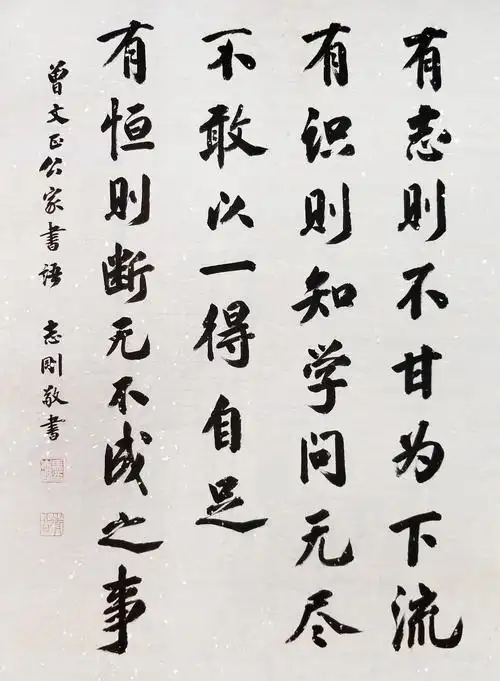 有志则不甘为下流
有识则知学问无尽
不敢以一得自足
有恒则断无不成之事
曾文正公家书语 志刚敬书